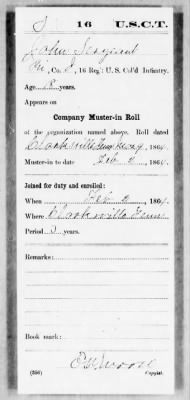 S 16 U.S.C.T.
John Sergeant
Pvt, Co. I, 16 Reg't U. S. Col'd Infantry.
Age 18 years.
Appears on
Company Muster-in Roll
of the organization named above. Roll dated
Clarksville Tenn May, 1864.
Muster-in to date Feb 2, 1864.
Joined for duty and enrolled:
When Feb 2, 1864.
Where Clarksville Tenn
Period 3 years.
Remarks:
Book mark:
Wood
(356) Copyist.